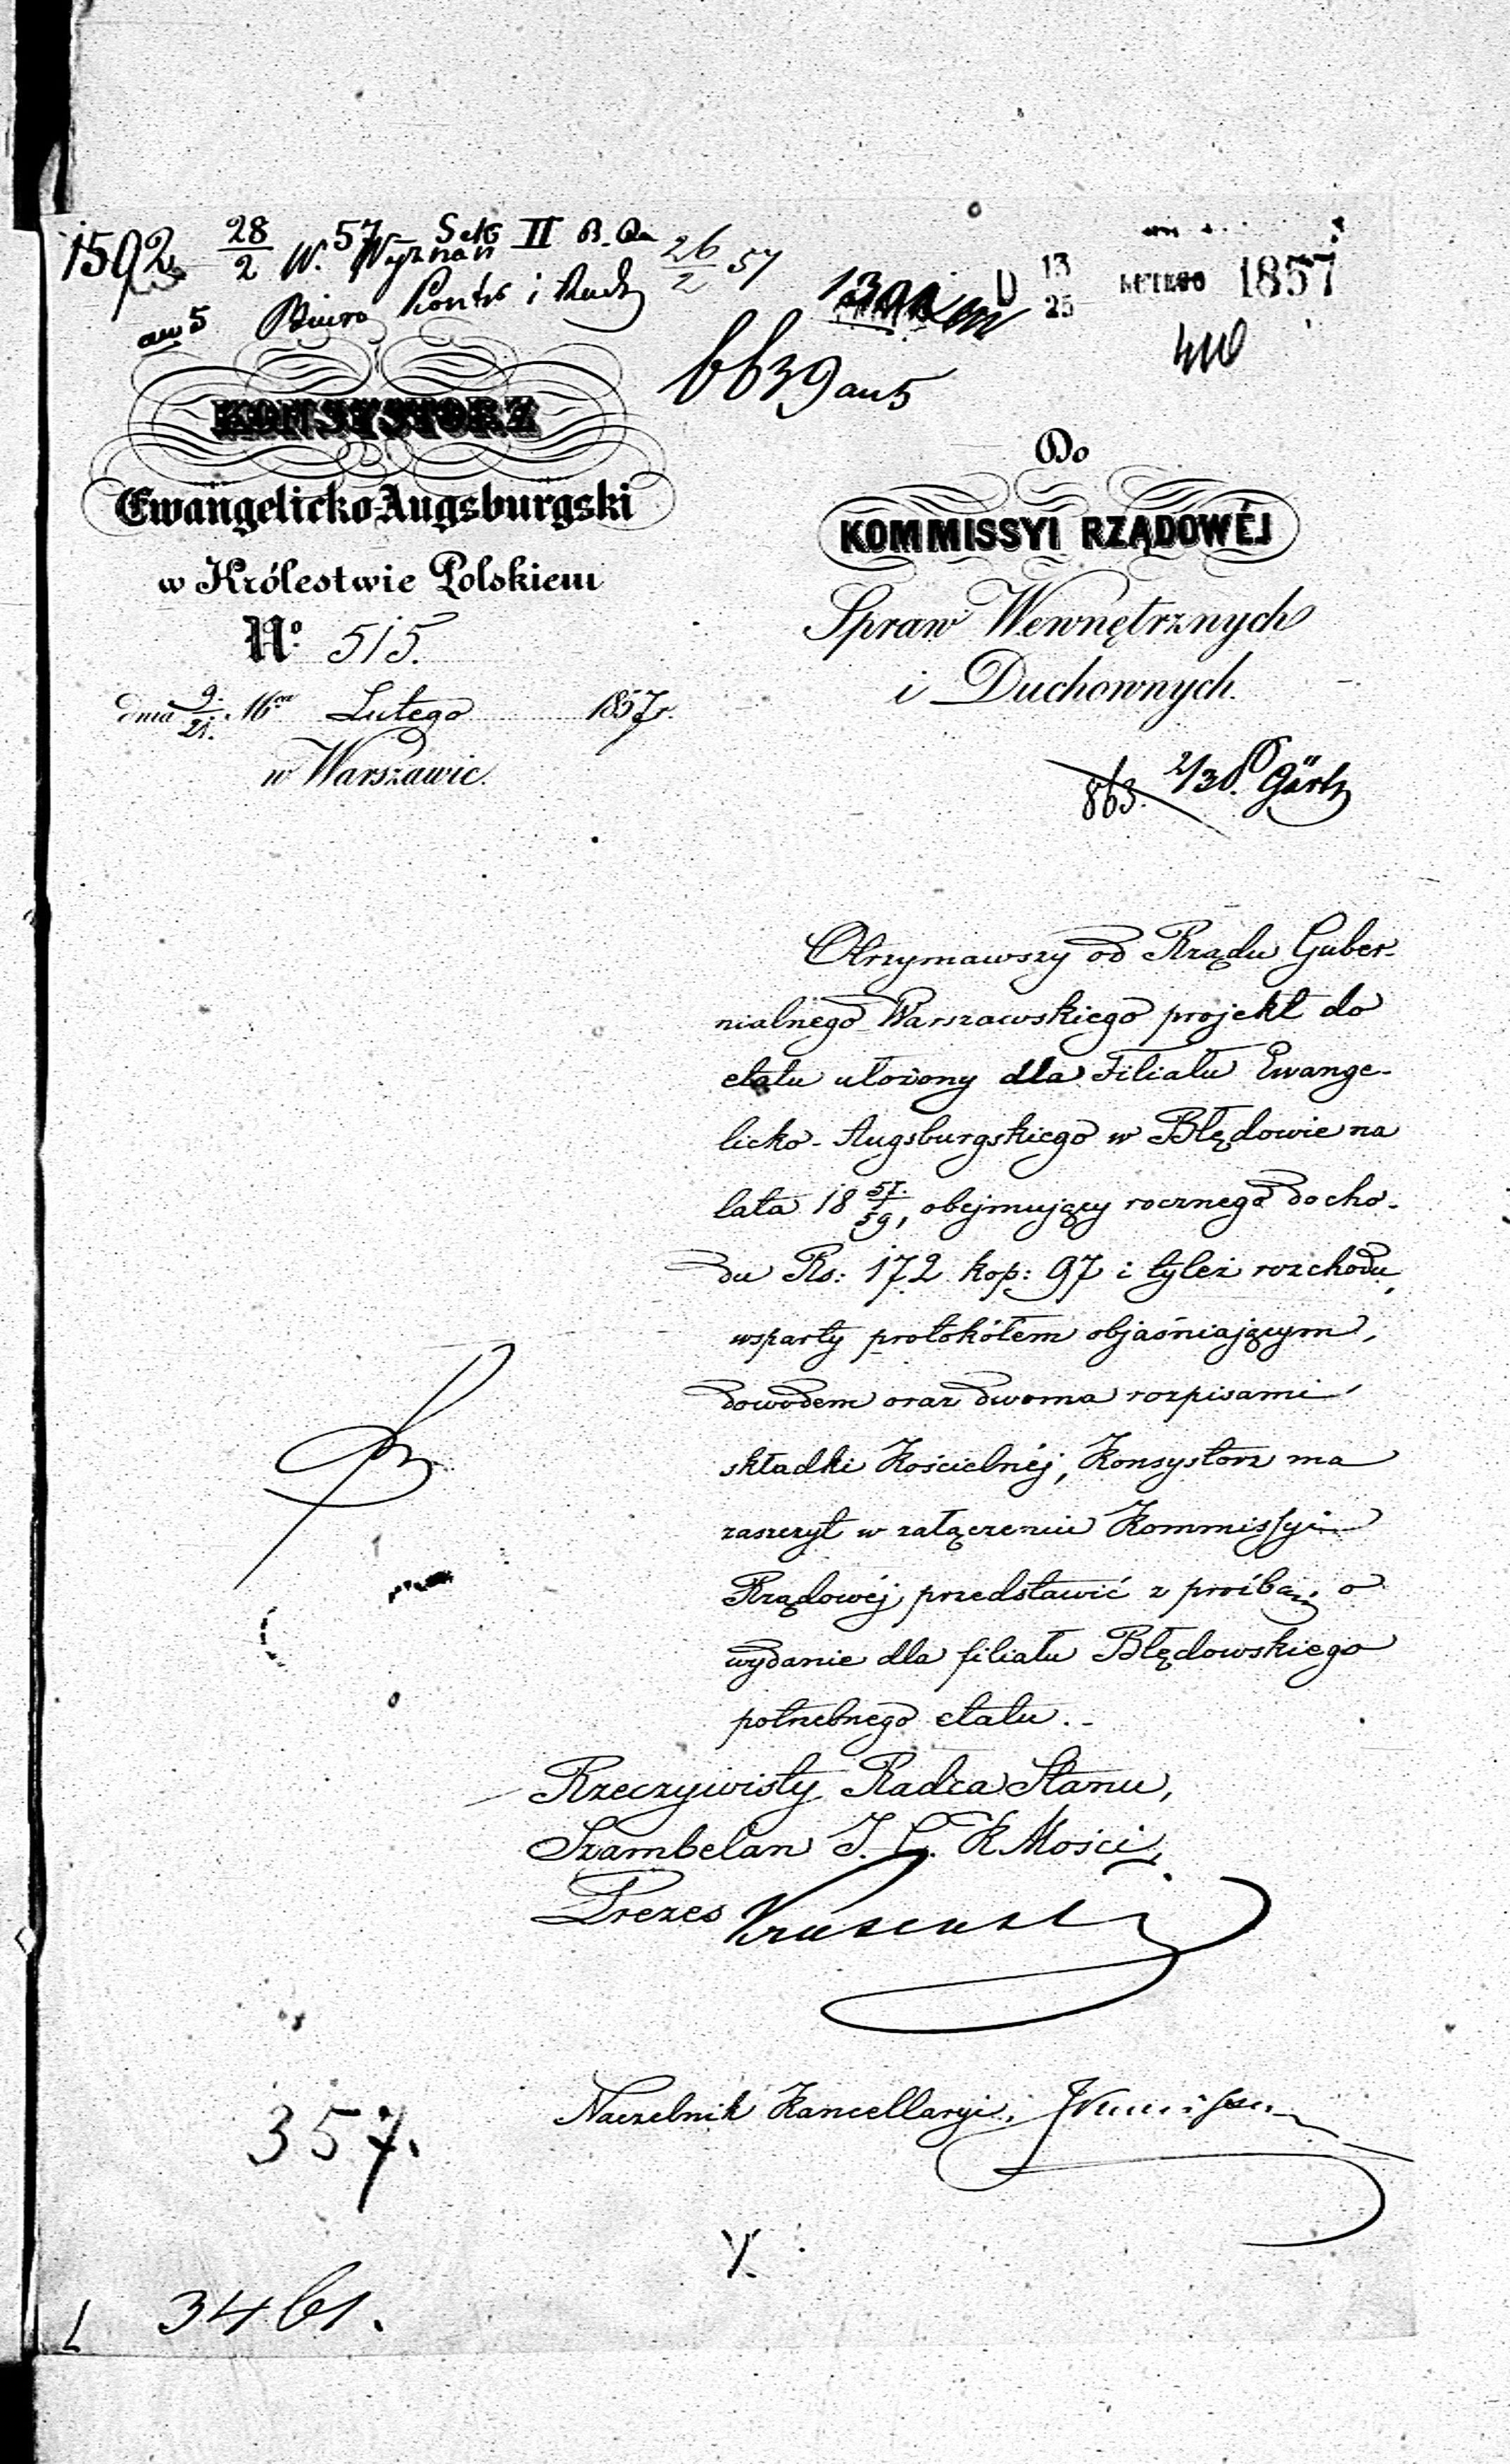 1592 28/2 W. 57 Sek II 26/2 57
Wyznań
an 5 Biuro Kontr i
D 13/25 LUTEGO 1857
6639 an 5
KONSYSTORZ
Ewangelicko-Augsburgski
w Królestwie Polskiem
No 515.
dnia 9/21. Lutego 1857 r.
w Warszawie.
Do
KOMMISSYI RZĄDOWÉJ
Spraw Wewnętrznych
i Duchownych.
863. 2/3
Otrzymawszy od Rządu Guber-
nialnego Warszawskiego projekt do
etatu ułożony dla Filiału Ewange-
licko-Augsburgskiego w Błędowie na
lata 18 57/59, obejmujący rocznego docho-
du Rs: 172 kop: 97 i tyleż rozchodu,
wsparty protokółem objaśniającym,
dowodem oraz dwoma rozpisami
składki Kościelnéj, Konsystorz ma
zaszczyt w załączeniu Kommissyi
Rządowéj przedstawić z prośbą o
wydanie dla filiału Błędowskiego
potrzebnego etatu.-
Rzeczywisty Radca Stanu,
Szambelan J. C. K Mości,
Prezes
Naczelnik Kancellaryi,
357.
3461.